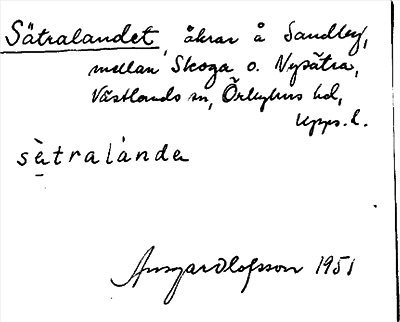 Sätralandet, åkrar å Sandby,
mellan Skoga o. Nysätra,
Västlands sn, Örbyhus hd,
Upps. l.
sè̱tralànde
Ansgar Olofsson 1951